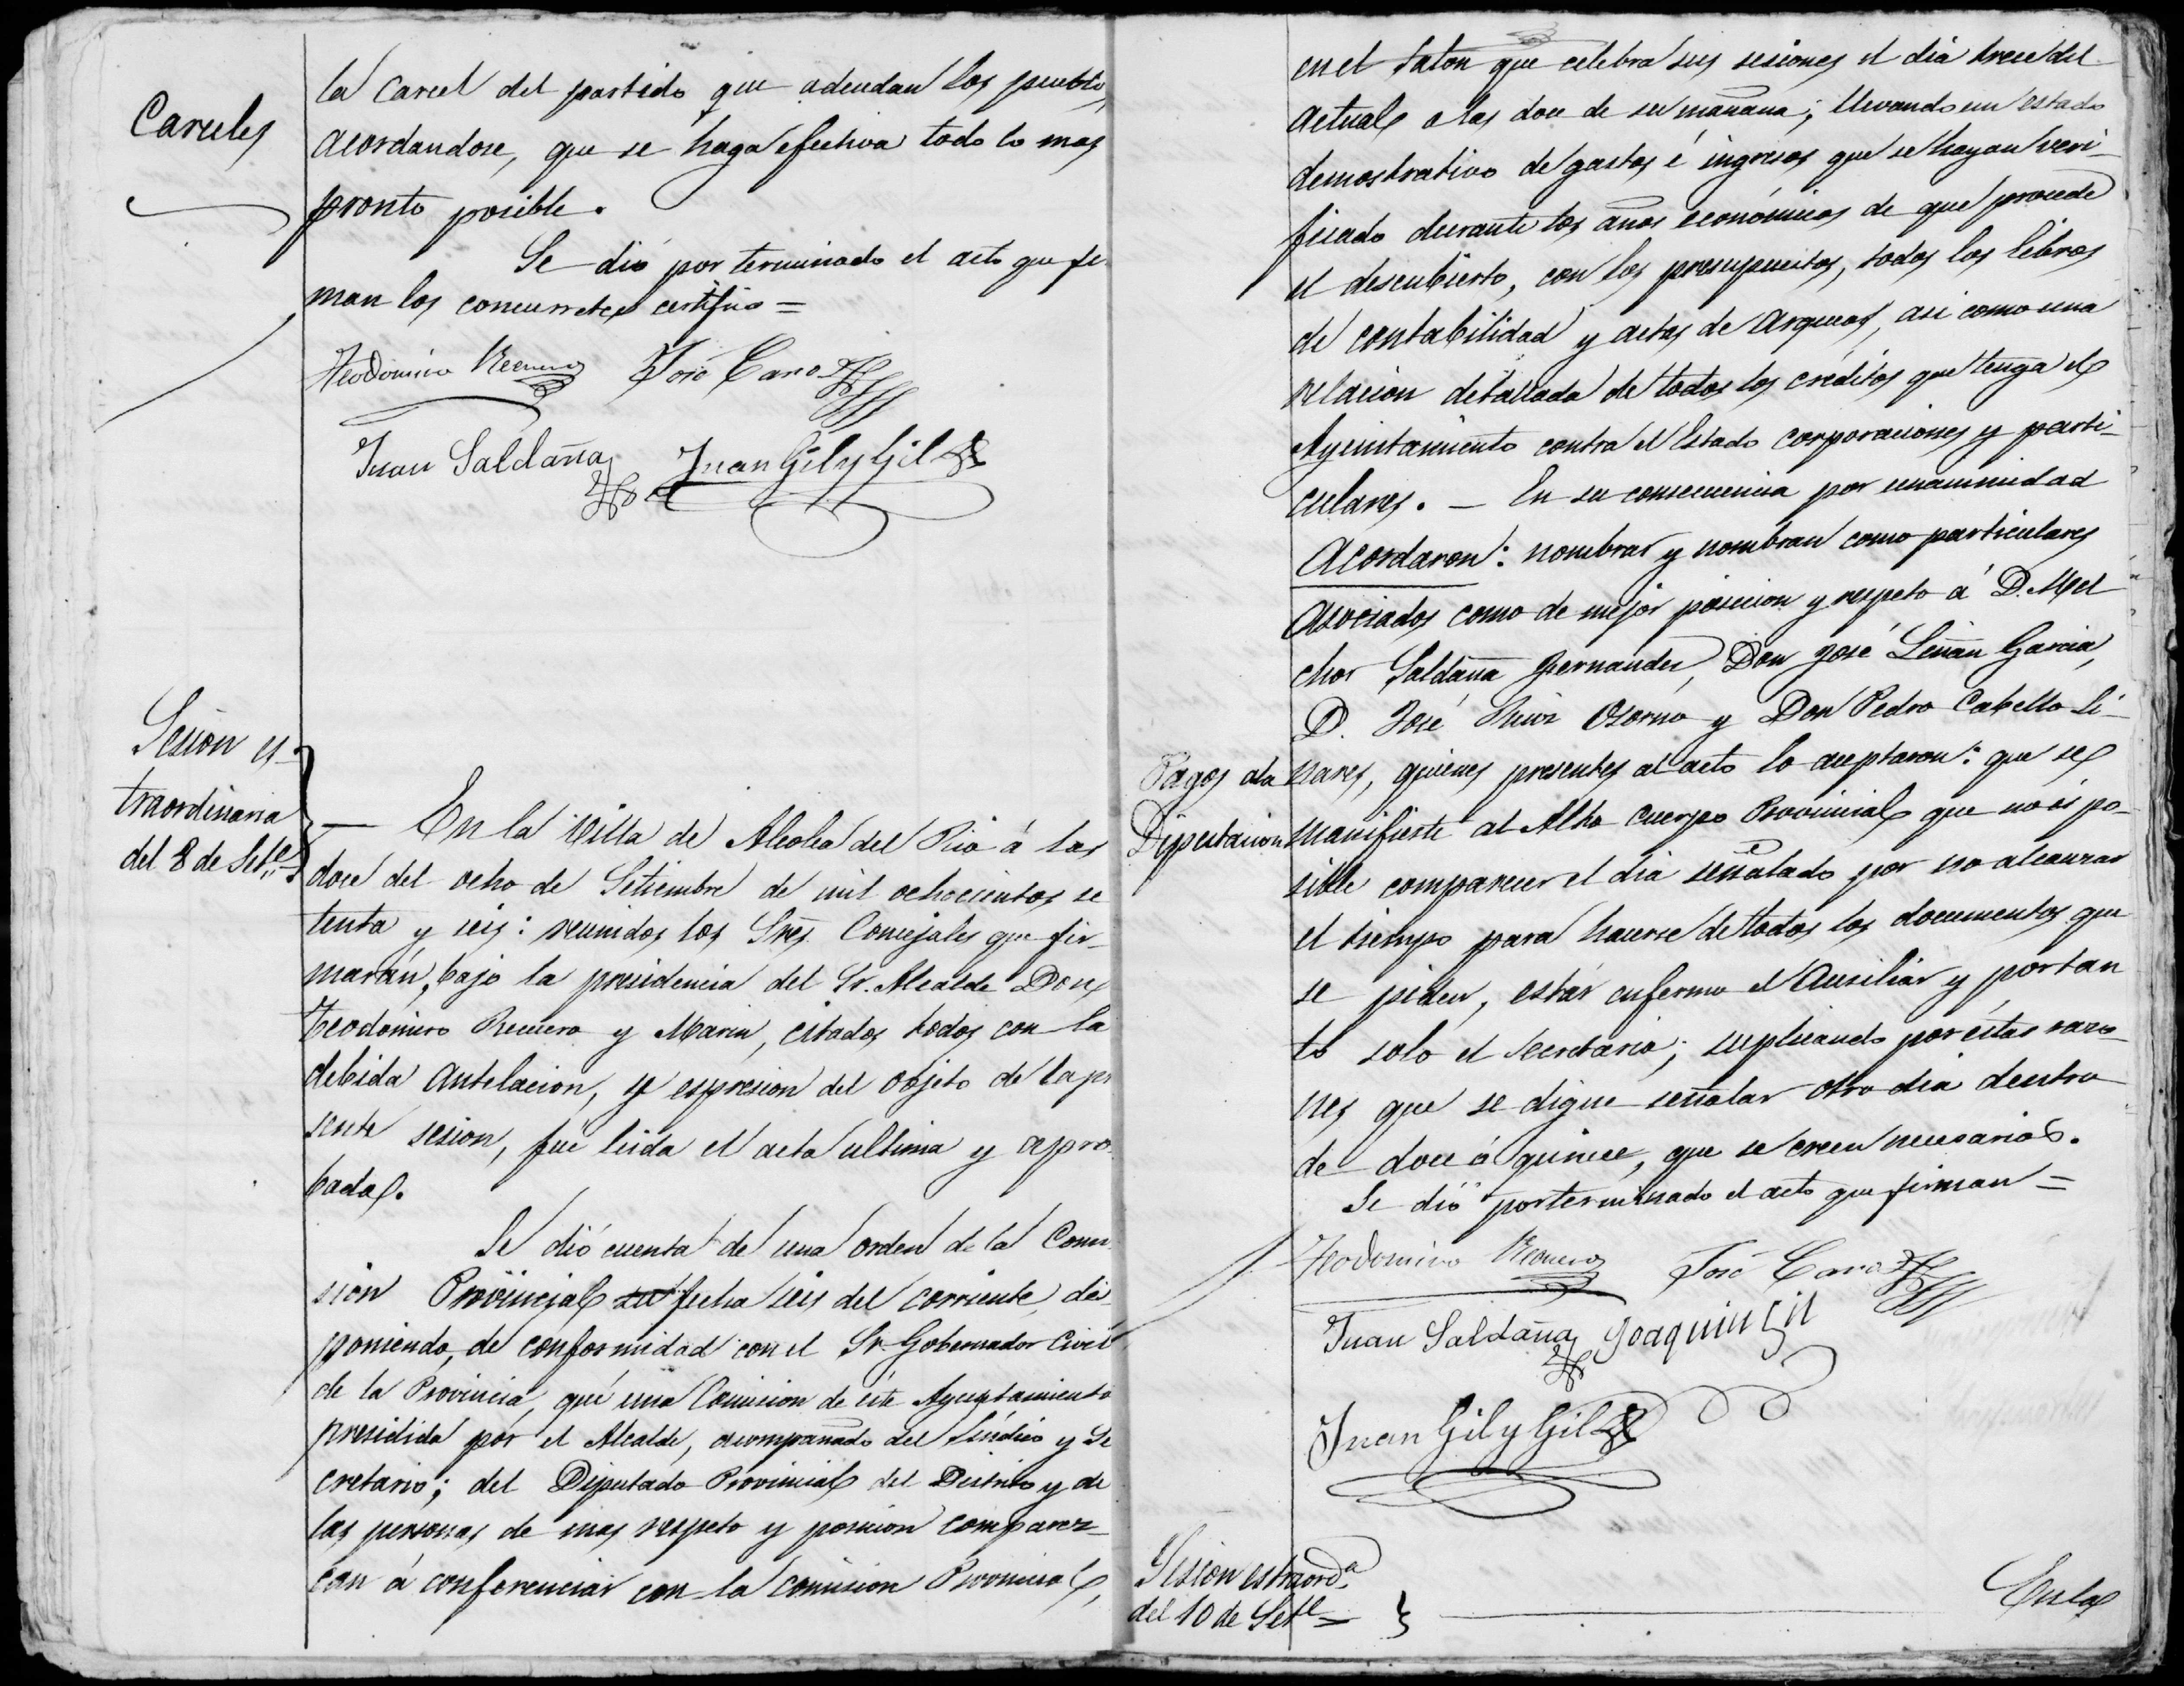 Carceles
la Carcel del partido que adeudan los pueblos,
acordandose, que se haga efectiva todo lo mas
pronto posible.
Se dió por terminado el acto que fir
man los concurretes certifico =
Teodomiro Recuero José Caro
Juan Saldaña Juan Gil y Gil
Sesion es-
traordinaria
del 8 de Set.e
— En la Villa de Alcolea del Rio á las
doce del ocho de Setiembre de mil ochocientos se
tenta y seis: reunidos los Sres. Concejales que fir-
marán, bajo la presidencia del Sr. Alcalde Don
Teodomiro Recuero y Marin, citados todos con la
debida antelacion, y espresion del objeto de la pre
sente sesion, fue leida el acta ultima y apro-
bada.
Se dió cuenta de una orden de la Comi
sion Provincial su fecha seis del corriente, dis
poniendo, de conformidad con el Sr. Gobernador Civil
de la Provincia, que una Comision de este Ayuntamiento
presidida por el Alcalde, acompañado del Síndico y Se
cretario; del Diputado Provincial del Distrito y de
las personas de mas respeto y posicion comparez-
can á conferenciar con la Comision Provincial,
en el Salon que celebra sus sesiones el dia trece del
actual a las doce de su mañana; llevando un estado
demostrativo de gastos é ingresos que se hayan veri-
ficado durante los años económicos de que procede
el descubierto, con los presupuestos, todos los libros
de contabilidad y actas de arqueos, asi como una
relacion detallada de todos los créditos que tenga el
Ayuntamiento contra el Estado corporaciones y parti-
culares. — En su consecuencia por unanimidad
Acordaron: nombrar y nombran como particulares
asociados como de mejor posicion y respeto á D. Mel
chor Saldaña Fernandez, Don José Liñan Garcia,
D. José Osorno y Don Pedro Cabello Li-
Pagos á la
Diputacion
nares, quienes presentes al acto lo aceptaron: que se
manifieste al Alto Cuerpo Provincial que no es po-
sible comparecer el dia señalado por no alcanzar
el tiempo para hacerse de todos los documentos que
se piden, estár enfermo el Auxiliar y por tan
to solo el Secretario; suplicando por éstas razo-
nes que se digne señalar otro dia dentro
de doce á quince, que se creen necesarios.
Se dió por terminado el acto que firman =
Teodomiro Recuero José Caro
Juan Saldaña Joaquin Gil
Juan Gil y Gil
Sesion estraord.a
del 10 de Set.e =
En la